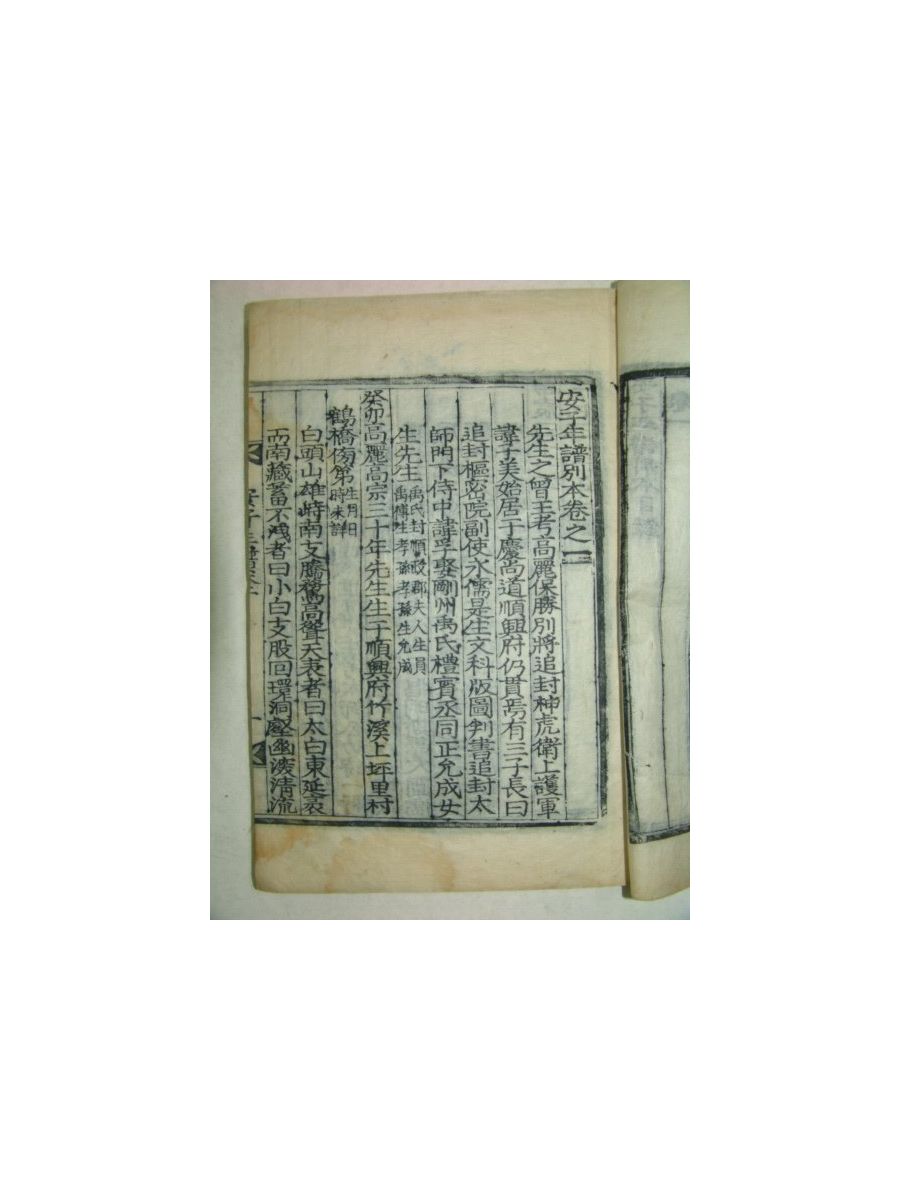 安子年譜別本卷之一
先生之曾王考高麗保勝別將追封神虎衛上護軍
諱子美始居于慶尚道順興府仍貫焉有三子長曰
追封樞密院副使永儒是生文科版圖判書追封太
師門下侍中諱孚娶剛州禹氏禮賓丞同正允成女
生先生禹氏封順政郡夫人生員禹傅生孝孫孝孫生允成
癸卯高麗高宗三十年先生生于順興府竹溪上坪里村
鶴橋傍第生月日時未詳
白頭山雄峙南支騰騖高聳天表者曰太白東延裒
而南藏蓄不洩者曰小白支股回環洞壑幽淸流